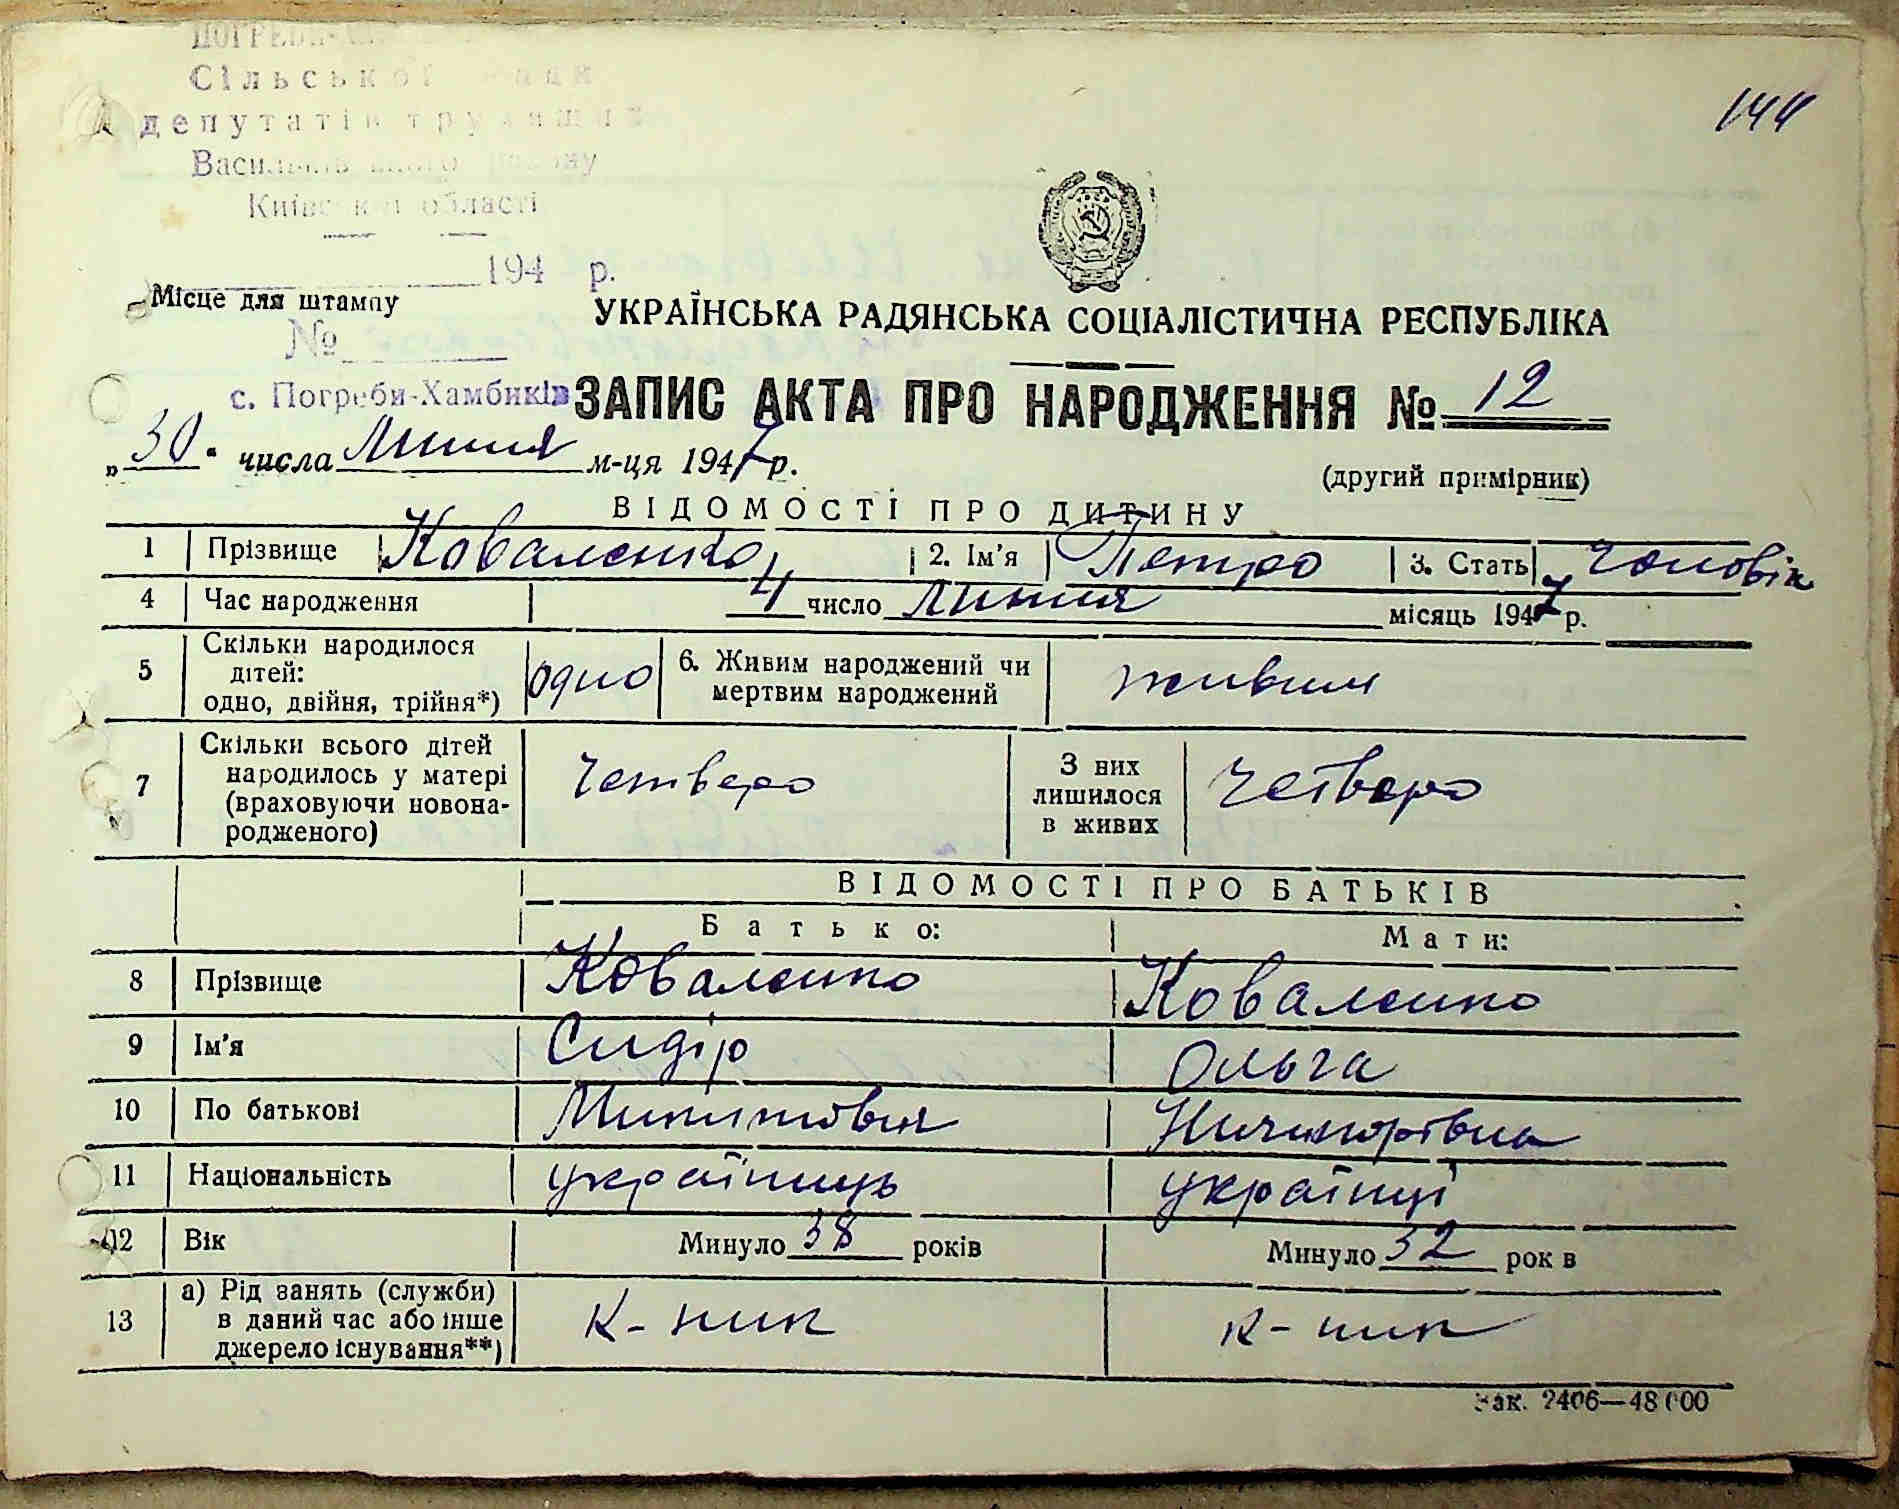 Сільської ради
депутатів трудящих
Васильківського району
Київської області
144
194 р.
Місце для штампу
№
с. Погреби-Хамбиків
УКРАЇНСЬКА РАДЯНСЬКА СОЦІАЛІСТИЧНА РЕСПУБЛІКА
ЗАПИС АКТА ПРО НАРОДЖЕННЯ № 12
„30" числа Липня м-ця 1947 р.
(другий примірник)
ВІДОМОСТІ ПРО ДИТИНУ
1 Прізвище Коваленко 2. Ім'я Петро 3. Стать чоловік
4 Час народження 4 число липня місяць 1947 р.
5 Скільки народилося
дітей:
одно, двійня, трійня*) одно 6. Живим народжений чи
мертвим народжений живим
7 Скільки всього дітей
народилось у матері
(враховуючи новона-
родженого) Четверо З них
лишилося
в живих Четверо
ВІДОМОСТІ ПРО БАТЬКІВ
Батько: Мати:
8 Прізвище Коваленко Коваленко
9 Ім'я Сидір Ольга
10 По батькові Микитович Ничипорівна
11 Національність українець українці
12 Вік Минуло 38 років Минуло 32 рок в
13 а) Рід занять (служби)
в даний час або інше
джерело існування**) К-ник к-ник
Зак. 2406—48000